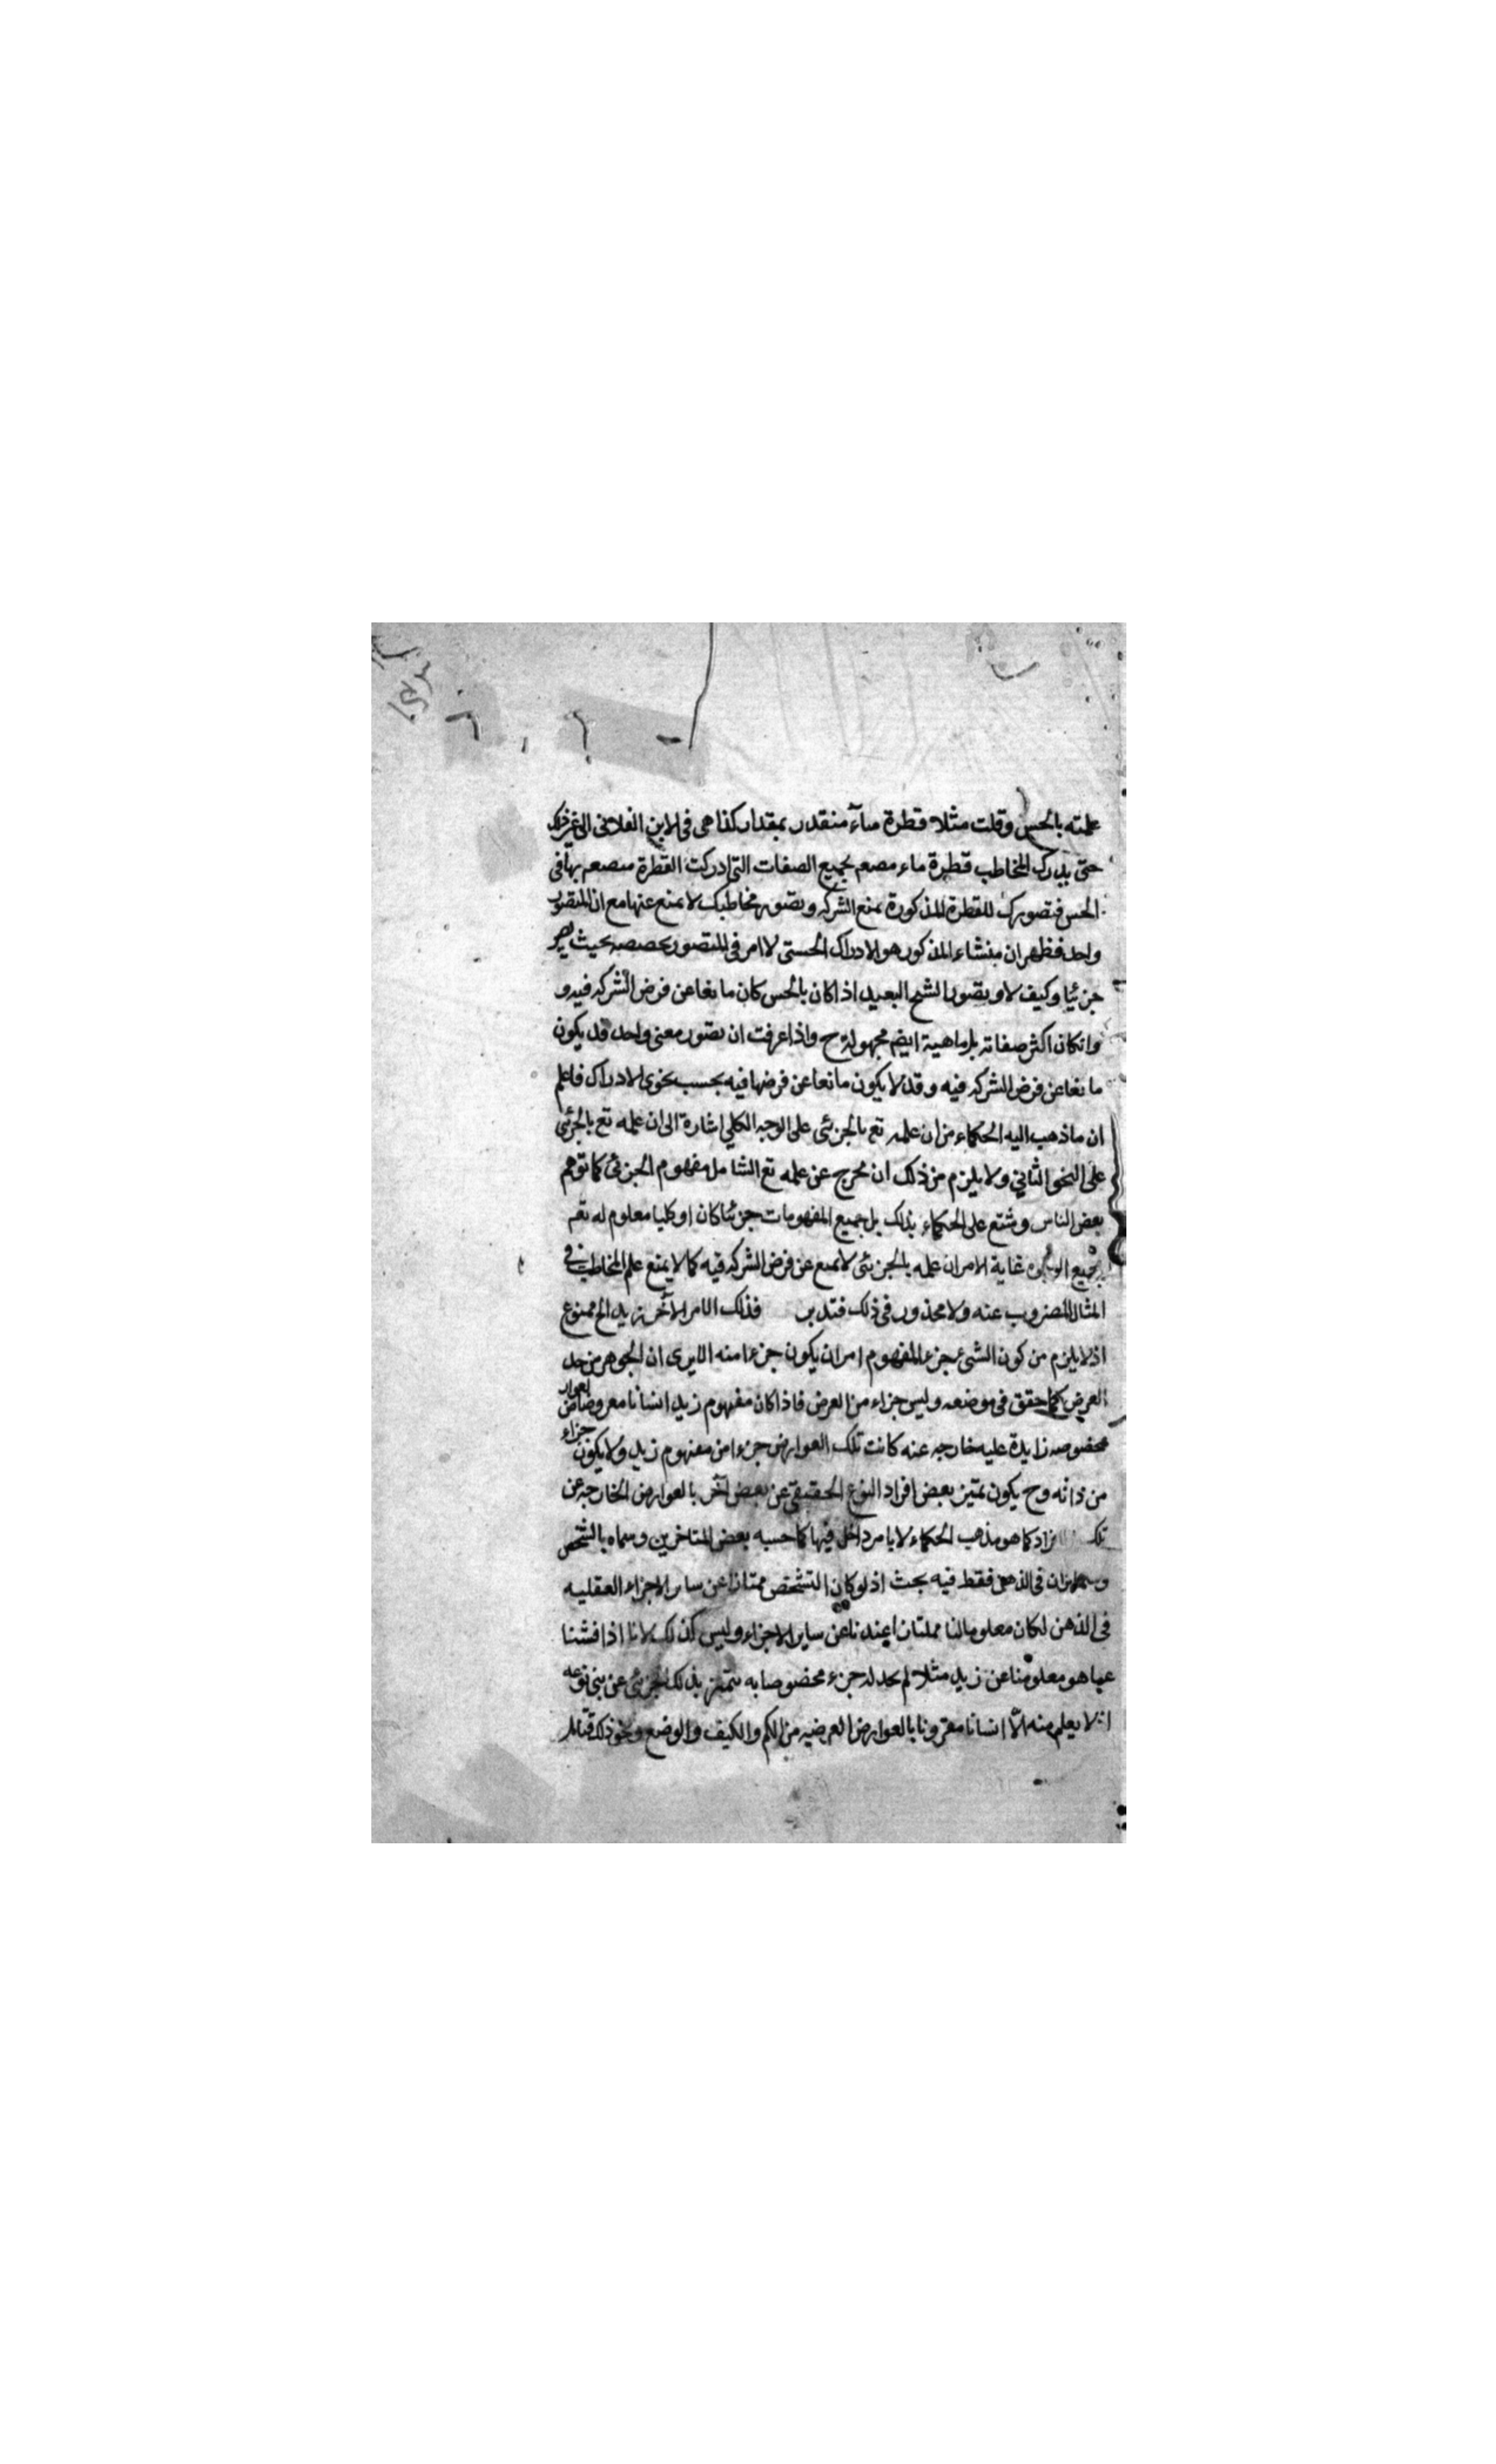 علمته بالحس وقلت مثلا قطرة ماۤء متقدر بمقدار كذا هى فى الاين الفلانى الى غير ذلك
حتى يدرك المخاطب قطرة ماء مصعم بجميع الصفات التى ادركت القطرة مصعم بها فى
الحس فتصورك للقطرة المذكورة يمنع الشركه وتصور مخاطبك لا يمنع عنها مع ان المتصور
واحد فظهر ان منشاء المذكور هو الادراك الحسى لا امر فى المتصور بخصصه بحيث يصير
جزئيا وكيف لا وتصور الشبح البعيد اذا كان بالحس كان مانعا عن فرض الشركه فيه و
وانكان اكثر صفاته بل ماهية ايضم مجهولة ح واذا عرفت ان تصور معنى واحد قد يكون
مانعا عن فرض الشركه فيه وقد لا يكون مانعا عن فرضها فيه بحسب نحوى الادراك فاعلم
ان ما ذهب اليه الحكماء من ان علمه تع بالجزئى على الوجه الكلي اشارة الى ان علمه تع بالجزئى
على النحو الثاني ولا يلزم من ذلك ان يخرج عن علمه تع الشامل مفهوم الجزئى كما توهم
بعض الناس وشنع على الحكماء بذلك بل جميع المفهومات جزئيا كان او كليا معلوم له تعم
بجميع الوجوه غاية الامر ان علمه بالجزئى لا يمنع عن فرض الشركه فيه كما لا يمنع علم المخاطب فى
المثال المضروب عنه ولا محذور فى ذلك فتدبر فذلك الامر الآخر زيد الخ ممنوع
اذ لا يلزم من كون الشىء جزء المفهوم امر ان يكون جزءا منه الا يرى ان الجوهر من حد
العرض كما حقق فى موضعه وليس جزاء من العرض فاذا كان مفهوم زيد انسانا معروضا من العوار
مخصوصه زايدة عليه خارجه عنه كانت تلك العوارض جزءا من مفهوم زيد ولا يكون جزاء
من ذاته وح يكون تميز بعض افراد النوع الحقيقى عن بعض آخر بالعوارض الخارجه عن
تلك الافراد كما هو مذهب الحكماء لا بامر داخل فيها كما حسبه بعض المتاخرين وسماه بالتشخص
فى الذهن فقط فيه بحث اذ لو كان التشخص ممتازا عن ساير الاجزاء العقليه
فى الذهن لكان معلوما لنا ممتازا عندنا عن ساير الاجزاء وليس كذلك لانا اذا فتشنا
عما هو معلومنا عن زيد مثلا لم نجد له جزء مخصوصا به يتميز بذلك الجزئى عن بنى نوعه
اذ لا يعلم منه الّا انسانا مقرونا بالعوارض العرضيه من الكم والكيف والوضع ونحو ذلك فتامل